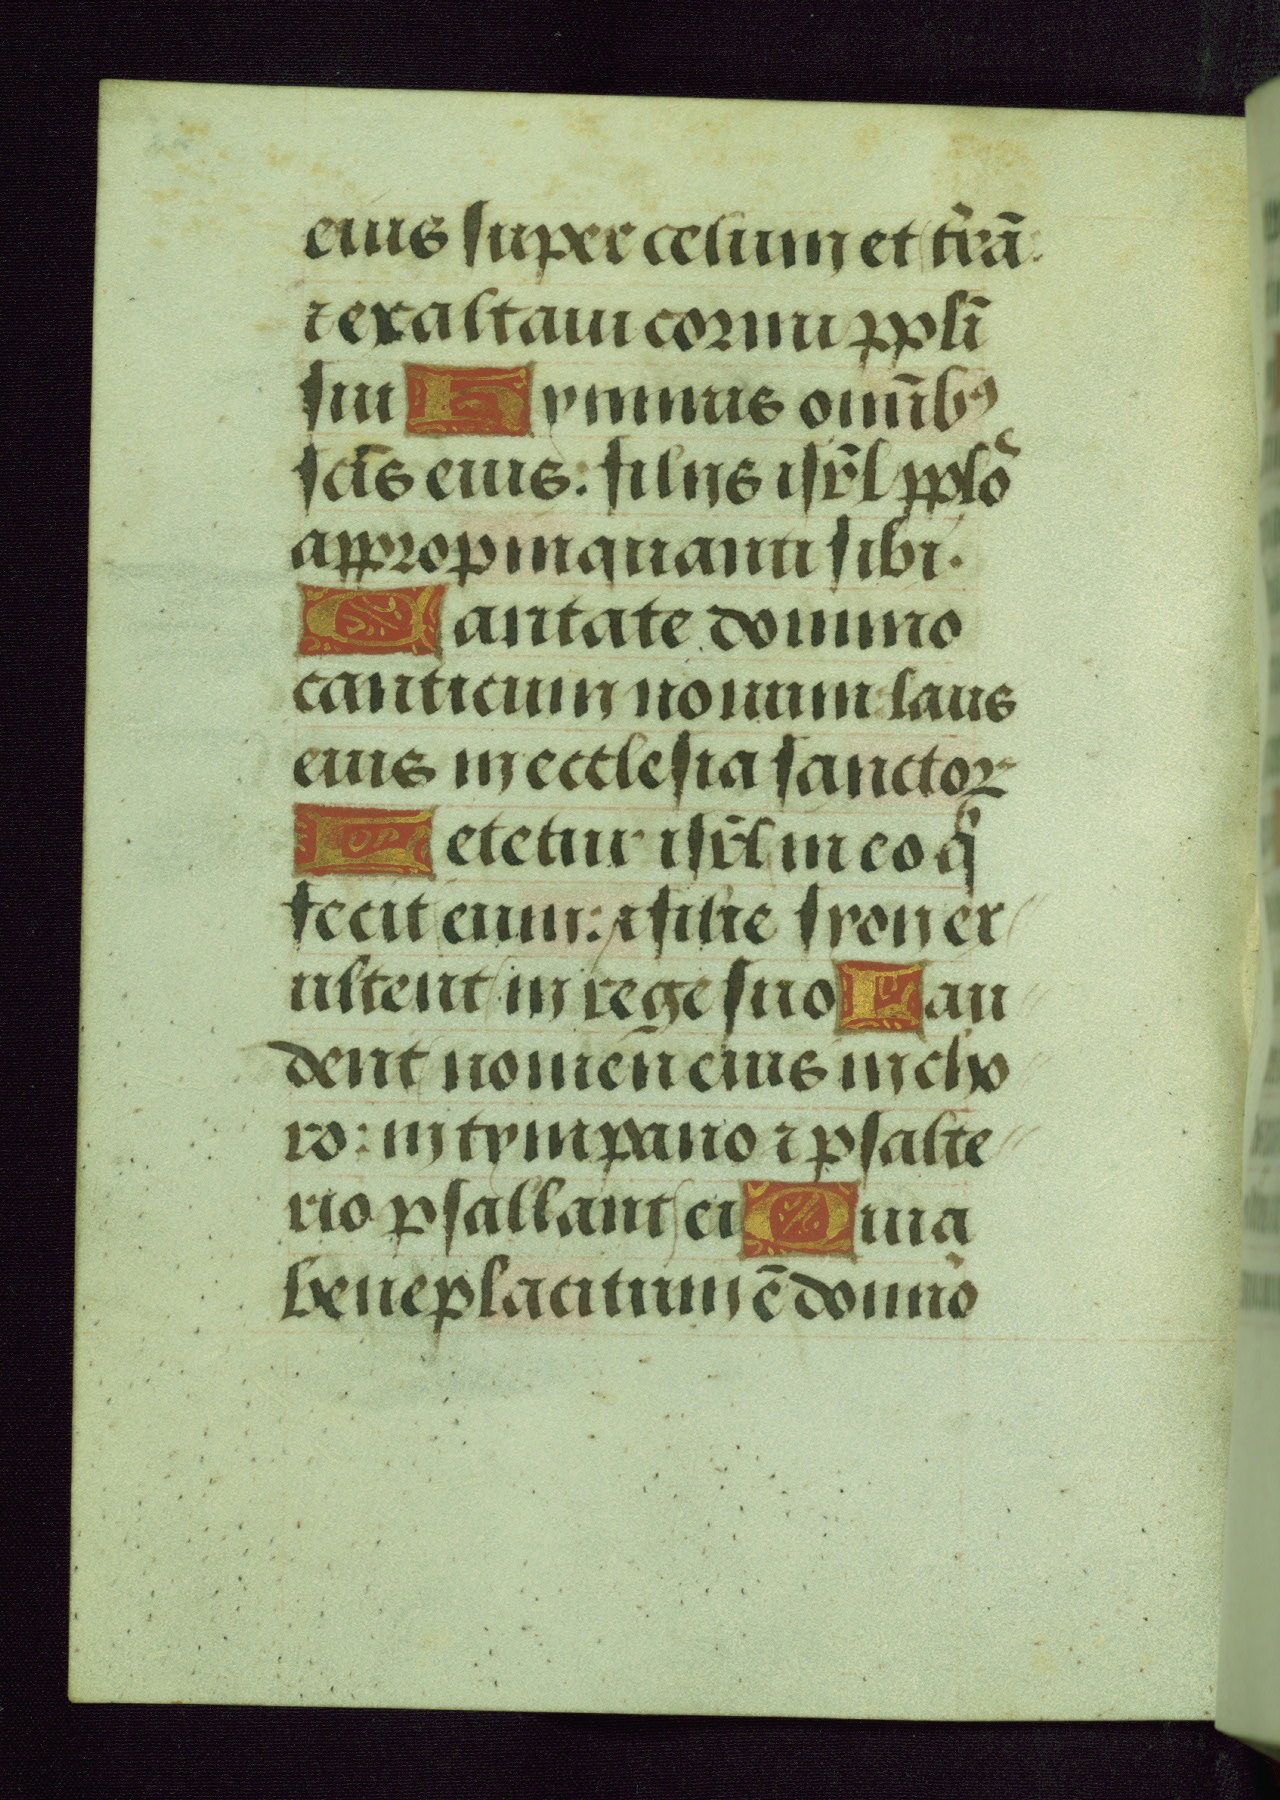 eius super celum et t̄rā.
⁊ exaltaui cornu ppl̄i
sui Hymnus omībꝰ
sc̄is eius: filijs isr̄l pplō
appropinquanti sibi.
Cantate domino
canticum nouum laus
eius in ecclesia sanctoꝝ
Letetur isr̄l in eo q̇
fecit eum: ⁊ filie syon ex
ultent in rege suo Lau
dent nomen̄ eius in cho
ro: in tympano ⁊ psalte
rio psallant ei Quia
beneplacitum ē domiō